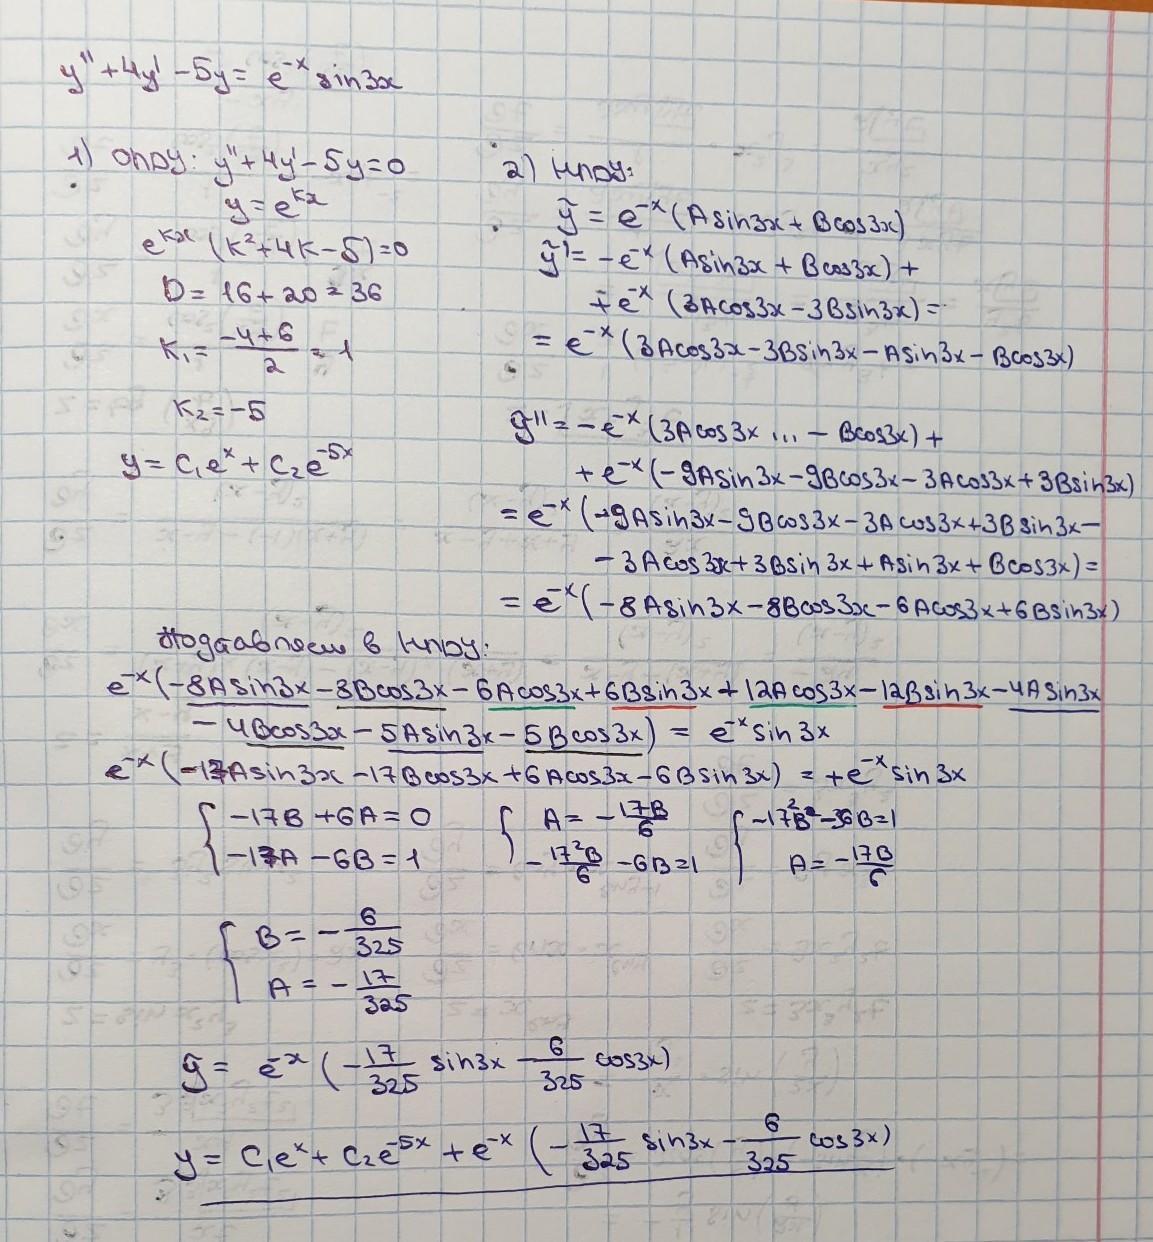 y'' + 4y' - 5y = e^{-x} sin3x
1) ОЛДУ: y'' + 4y' - 5y = 0
y = e^{kx}
e^{kx} (k² + 4k - 5) = 0
D = 16 + 20 = 36
K₁ = \frac{-4+6}{2} = 1
K₂ = -5
y = C₁e^x + C₂e^{-5x}
2) НЛДУ:
ỹ = e^{-x} (A sin3x + B cos3x)
ỹ' = -e^{-x} (A sin3x + B cos3x) +
+ e^{-x} (3A cos3x - 3B sin3x) =
= e^{-x} (3A cos3x - 3B sin3x - A sin3x - B cos3x)
ỹ'' = -e^{-x} (3A cos3x ... - B cos3x) +
+ e^{-x} (-9A sin3x - 9B cos3x - 3A cos3x + 3B sin3x)
= e^{-x} (-9A sin3x - 9B cos3x - 3A cos3x + 3B sin3x -
- 3A cos3x + 3B sin3x + A sin3x + B cos3x) =
= e^{-x} (-8A sin3x - 8B cos3x - 6A cos3x + 6B sin3x)
Подставляем в НЛДУ:
e^{-x} (-8A sin3x - 8B cos3x - 6A cos3x + 6B sin3x + 12A cos3x - 12B sin3x - 4A sin3x
- 4B cos3x - 5A sin3x - 5B cos3x) = e^{-x} sin3x
e^{-x} (-17A sin3x - 17B cos3x + 6A cos3x - 6B sin3x) = +e^{-x} sin3x
{ -17B + 6A = 0 { A = -\frac{17B}{6} { -17²B - 36B = 1
-17A - 6B = 1 -\frac{17²B}{6} - 6B = 1 A = -\frac{17B}{6}
{ B = -\frac{6}{325}
A = -\frac{17}{325}
ỹ = e^{-x} (-\frac{17}{325} sin3x - \frac{6}{325} cos3x)
y = C₁e^x + C₂e^{-5x} + e^{-x} (-\frac{17}{325} sin3x - \frac{6}{325} cos3x)